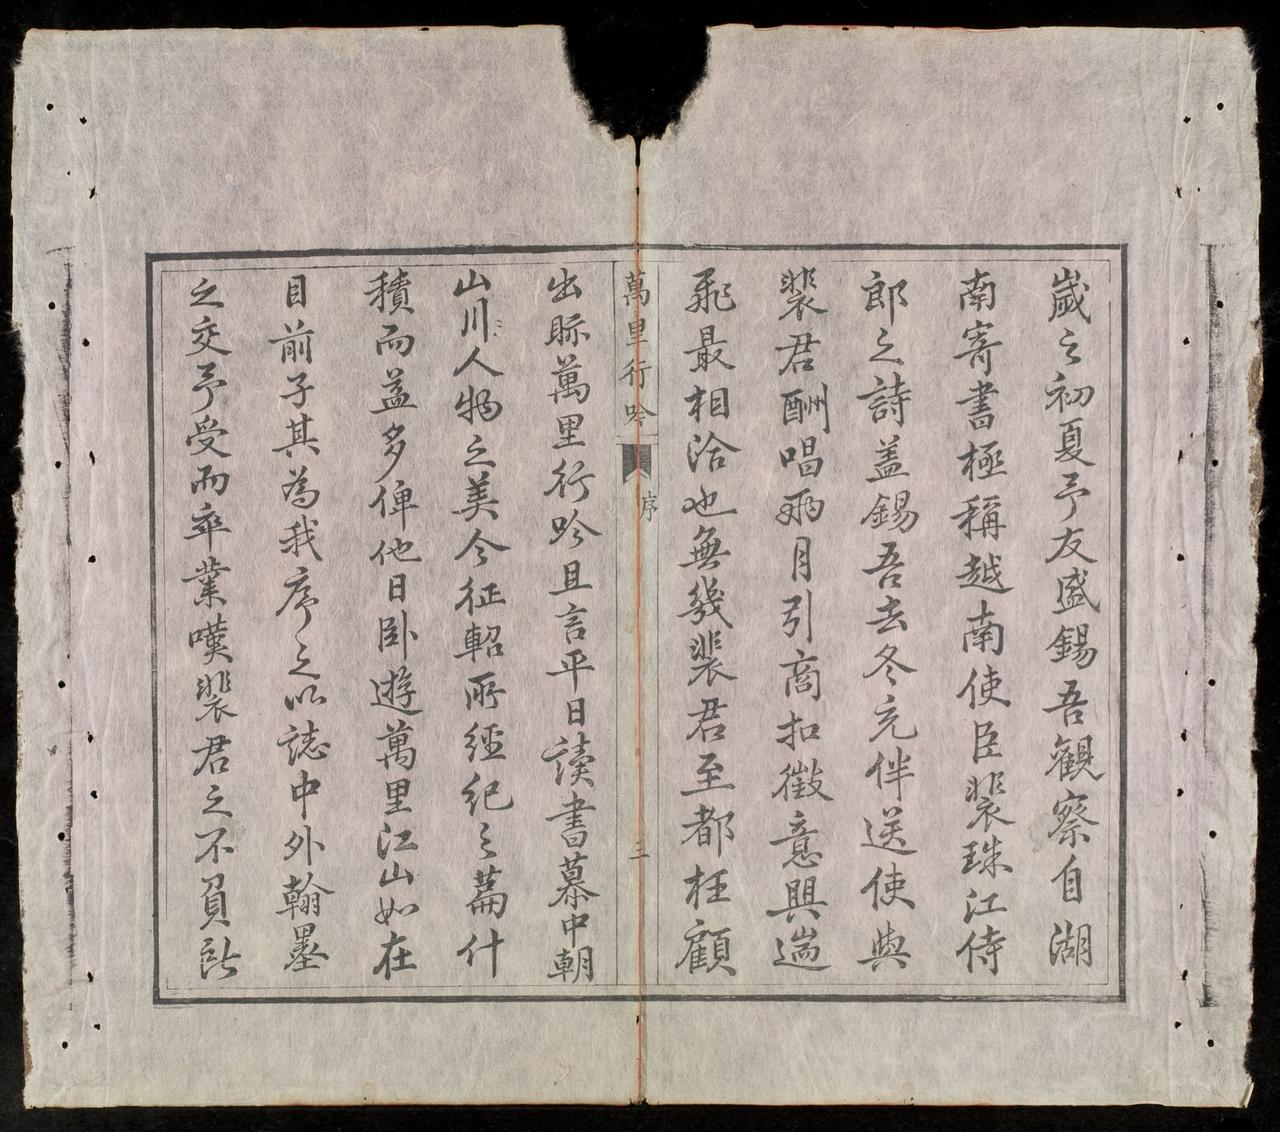 歲之初夏予友盛錫吾觀察自湖
南寄書極稱越南使臣裴珠江侍
郎之詩盖錫吾去冬充伴送使與
裴君酬唱兩月引商扣徵意興遄
飛最相洽也無幾裴君至都枉顧
萬里行吟
序
三
出眎萬里行吟且言平日讀書慕中朝
山川人物之美今征軺所經紀之篇什
積而益多俾他日卧遊萬里江山如在
目前子其為我序之以誌中外翰墨
之交予受而卒業嘆裴君之不負此